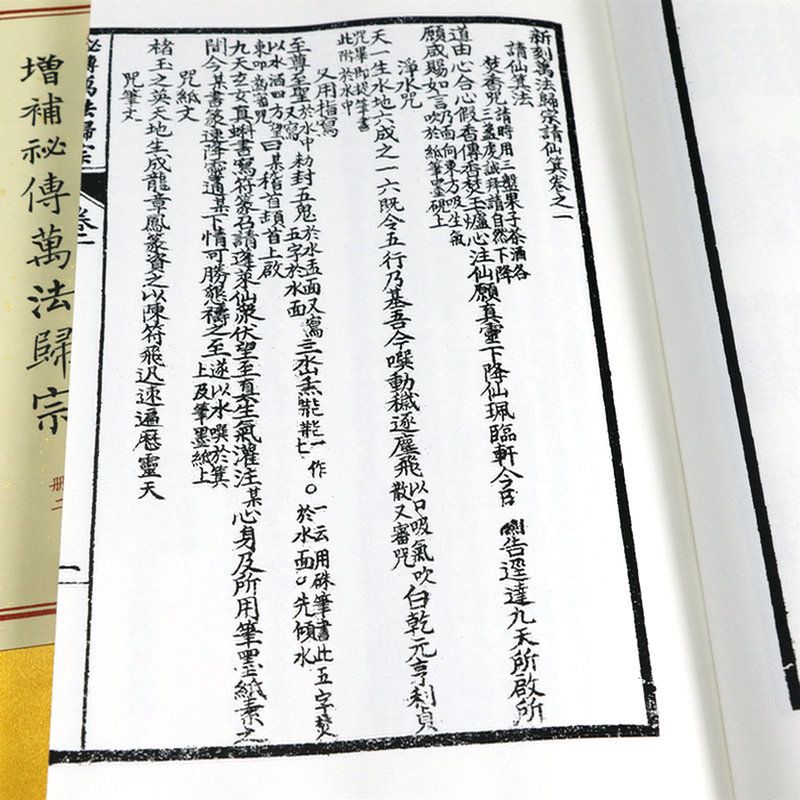 新刻萬法歸宗請仙箕卷之一
請仙箕法
請時用三盤果子茶酒各
焚香咒三盃虔誠拜請自然下降
道由心合心假香傳香焚玉爐心注仙願真靈下降仙珮臨軒今臣 關告逕達九天所啟所
願咸賜如言仍面向東方吸生氣
吹於紙筆墨硯上
淨水咒
天一生水地六成之一六既合五行乃基吾今噀動穢逐塵飛散以口吸氣吹
又審咒曰乾元亨利貞
咒畢即提筆書
此附於水中
又用指寫
至尊至聖於水中勑封五鬼於水盂面又寫
又寫五字於水面
一作
一云用硃筆書此五字焚
於水面先傾水
以水洒四方望
東叩齒審咒曰某稽首頓首上啟
九天玄女真蝌書寫符篆召請蓬萊仙眾伏望至真生氣灌注某心身及所用筆墨紙素之
間令某書篆速降靈通某下情可勝懇禱之至遂以水噀於箕
上及筆墨紙上
咒紙文
楮玉之英天地生成龍章鳳篆資之以陳符飛迅速遍歷靈天
咒筆文
祕傳萬法歸宗
卷一
一
增補祕傳萬法歸宗
册二